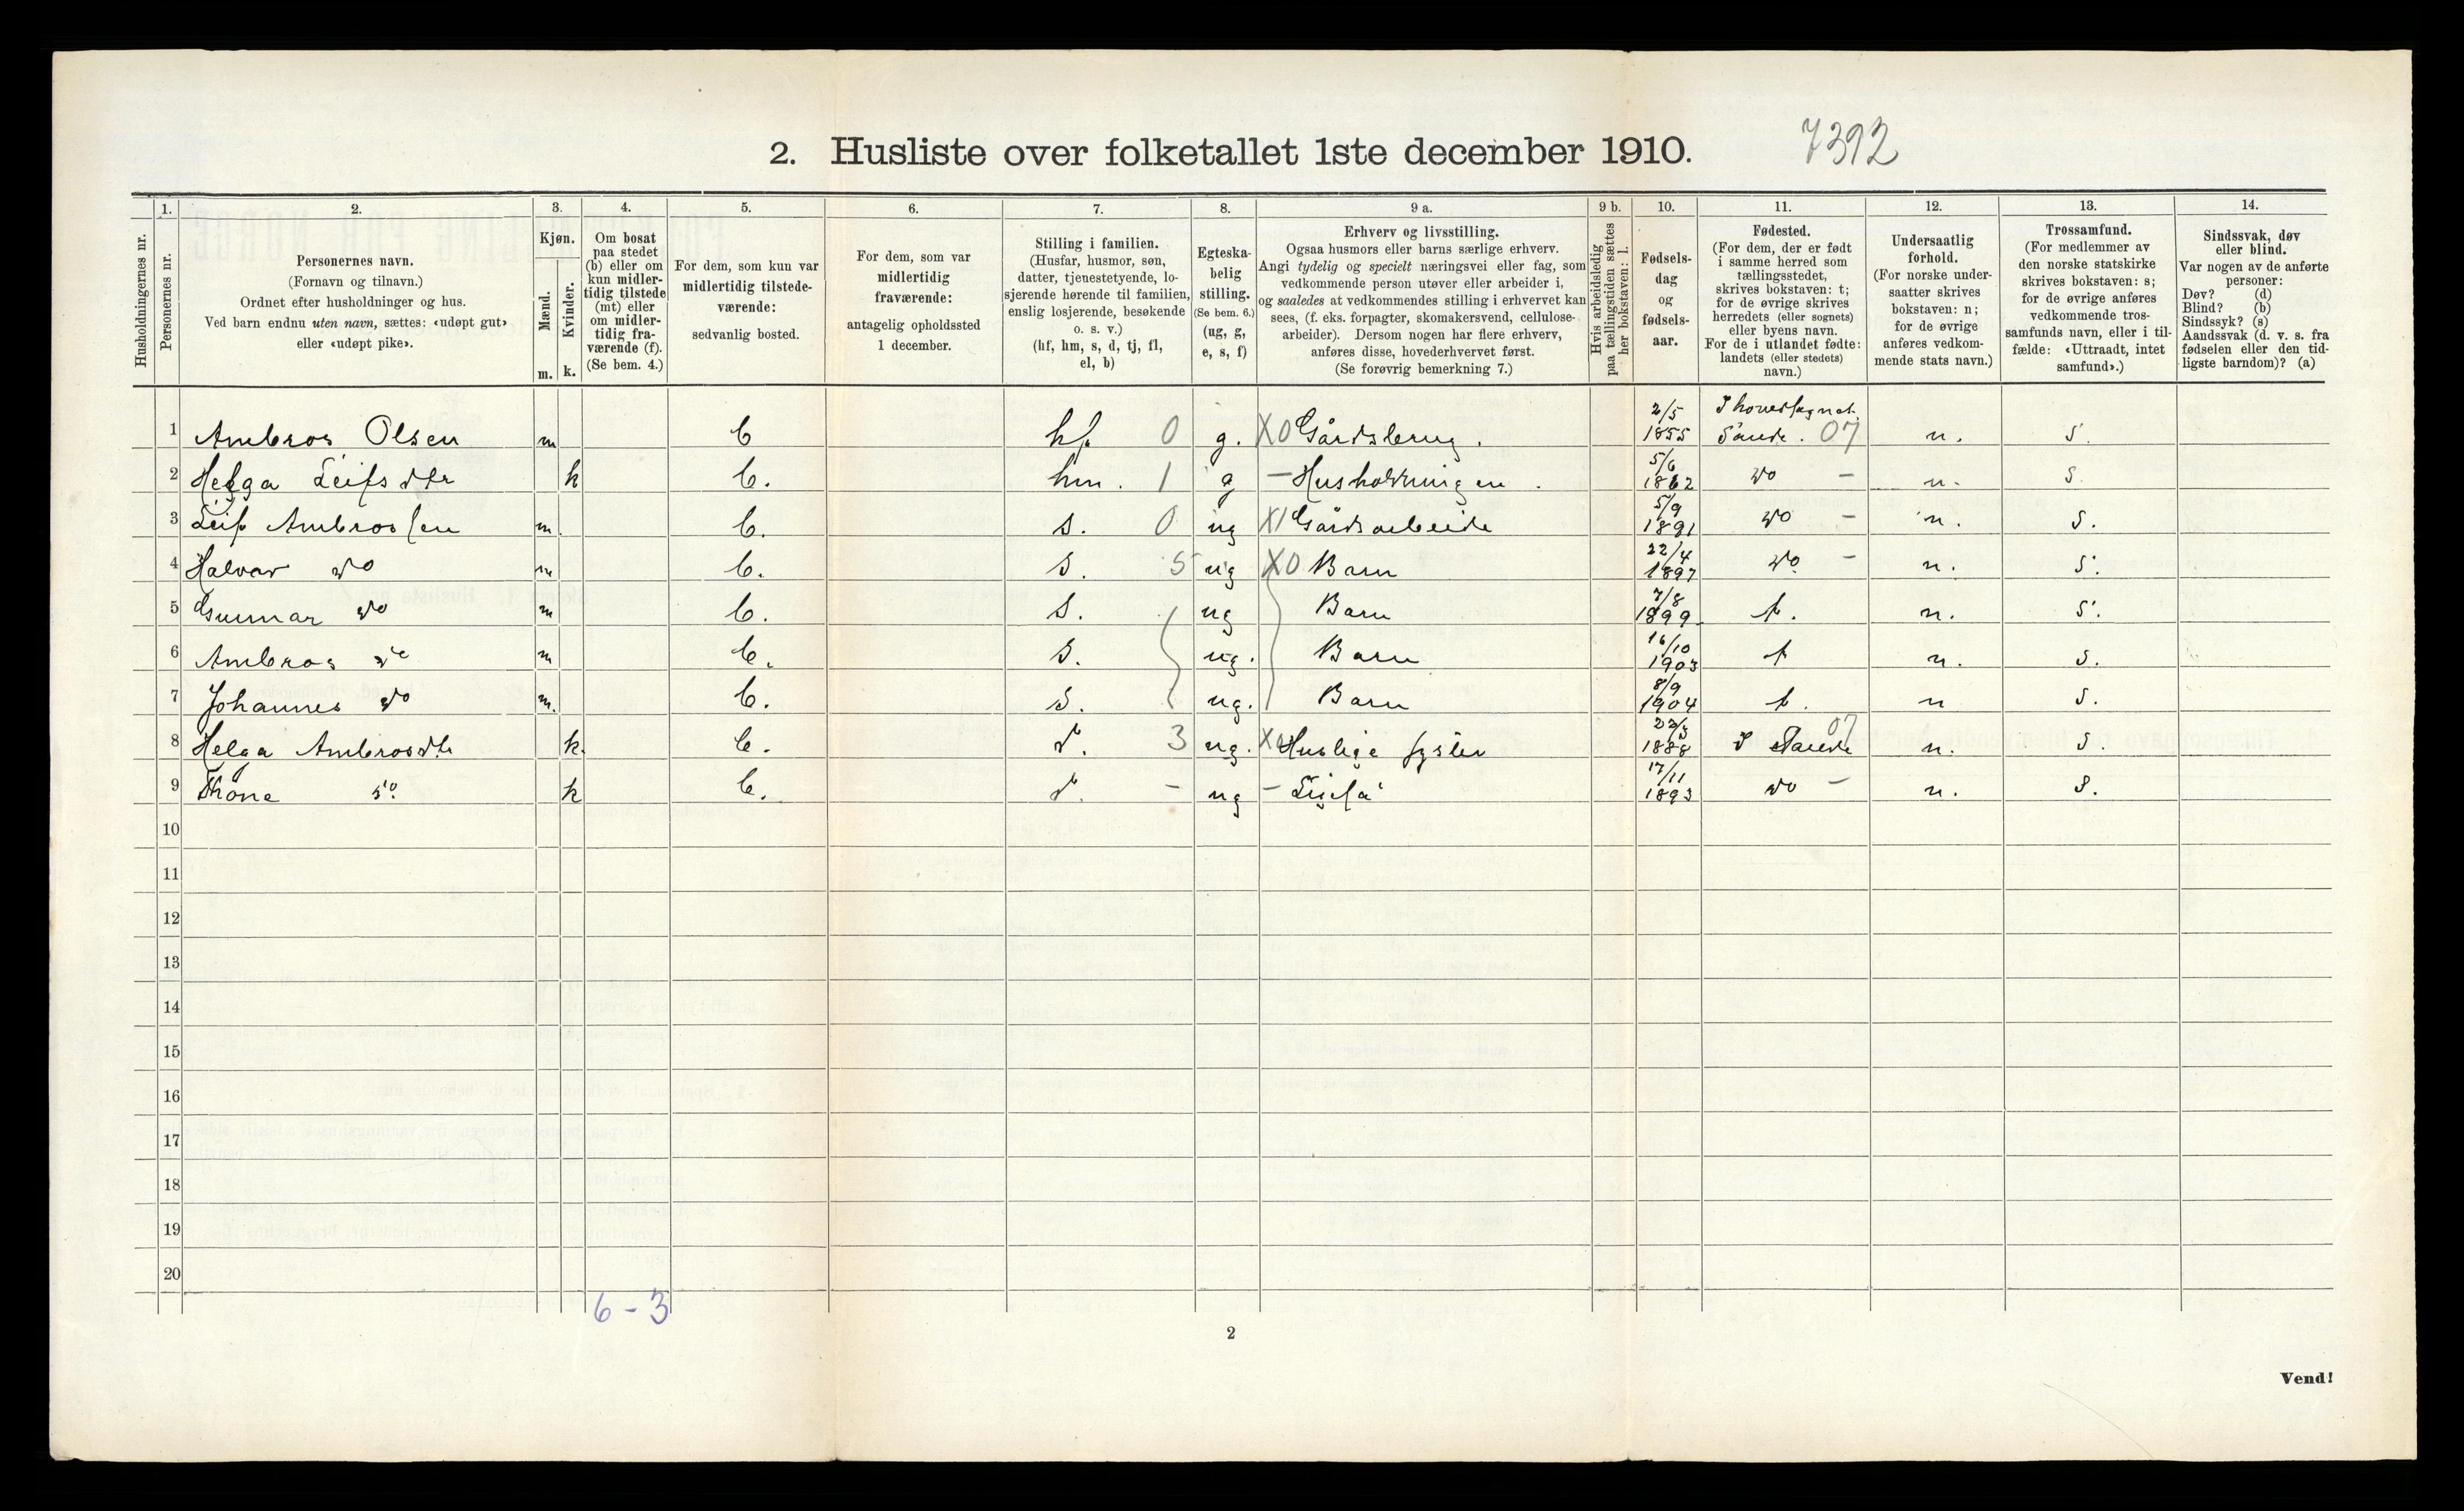 2. Husliste over folketallet 1ste december 1910. 7392
Husholdningernes nr.
1.
Personernes nr.
2.
Personernes navn.
(Fornavn og tilnavn.)
Ordnet efter husholdninger og hus.
Ved barn endnu uten navn, sættes: «udøpt gut»
eller «udøpt pike».
3.
Kjøn.
Mænd.
Kvinder.
m. k.
4.
Om bosat
paa stedet
(b) eller om
kun midler-
tidig tilstede
(mt) eller
om midler-
tidig fra-
værende (f).
(Se bem. 4.)
5.
For dem, som kun var
midlertidig tilstede-
værende:
sedvanlig bosted.
6.
For dem, som var
midlertidig
fraværende:
antagelig opholdssted
1 december.
7.
Stilling i familien.
(Husfar, husmor, søn,
datter, tjenestetyende, lo-
sjerende hørende til familien,
enslig losjerende, besøkende
o. s. v.)
(hf, hm, s, d, tj, fl,
el, b)
8.
Egteska-
belig
stilling.
(Se bem. 6.)
(ug, g,
e, s, f)
9 a.
Erhverv og livsstilling.
Ogsaa husmors eller barns særlige erhverv.
Angi tydelig og specielt næringsvei eller fag, som
vedkommende person utøver eller arbeider i,
og saaledes at vedkommendes stilling i erhvervet kan
sees, (f. eks. forpagter, skomakersvend, cellulose-
arbeider). Dersom nogen har flere erhverv,
anføres disse, hovederhvervet først.
(Se forøvrig bemerkning 7.)
9 b.
Hvis arbeidsledig
paa tællingstiden sættes
her bokstaven: l.
10.
Fødsels-
dag
og
fødsels-
aar.
11.
Fødested.
(For dem, der er født
i samme herred som
tællingsstedet,
skrives bokstaven: t;
for de øvrige skrives
herredets (eller sognets)
eller byens navn.
For de i utlandet fødte:
landets (eller stedets)
navn.)
12.
Undersaatlig
forhold.
(For norske under-
saatter skrives
bokstaven: n;
for de øvrige
anføres vedkom-
mende stats navn.)
13.
Trossamfund.
(For medlemmer av
den norske statskirke
skrives bokstaven: s;
for de øvrige anføres
vedkommende tros-
samfunds navn, eller i til-
fælde: «Uttraadt, intet
samfund».)
14.
Sindssvak, døv
eller blind.
Var nogen av de anførte
personer:
Døv? (d)
Blind? (b)
Sindssyk? (s)
Aandssvak (d. v. s. fra
fødselen eller den tid-
ligste barndom)? (a)
1 Ambros Olsen m b hf 0 g. X0 Gårdsbrug. 2/5 1855 I hovedsognet Saude. 07 n. S.
2 Helga Leifsdtr k b. hm. 1 g - Husholdningen. 5/6 1862 do - n. S.
3 Leif Ambrossen m. b. s. 0 ug X1 Gårdsarbeide 5/9 1891 do - n. S.
4 Halvor do m b. s. 5 ug X0 Barn 22/4 1897 do - n. S.
5 Gunnar do m b. s. ug Barn 7/8 1899 t. n. S.
6 Ambros do m b. s. ug. Barn 16/10 1903 t n. S.
7 Johannes do m. b. s. ug. Barn 8/9 1904 t. n S.
8 Helga Ambrosdtr k. b. d. 3 ug. X Huslige sysler 1888 I Saude 07 n. S.
9 Thone do k b. d. - ug - 17/11 1893 do - n. S.
10
11
12
13
14
15
16
17
18
19
20
6 - 3
2
Vend!